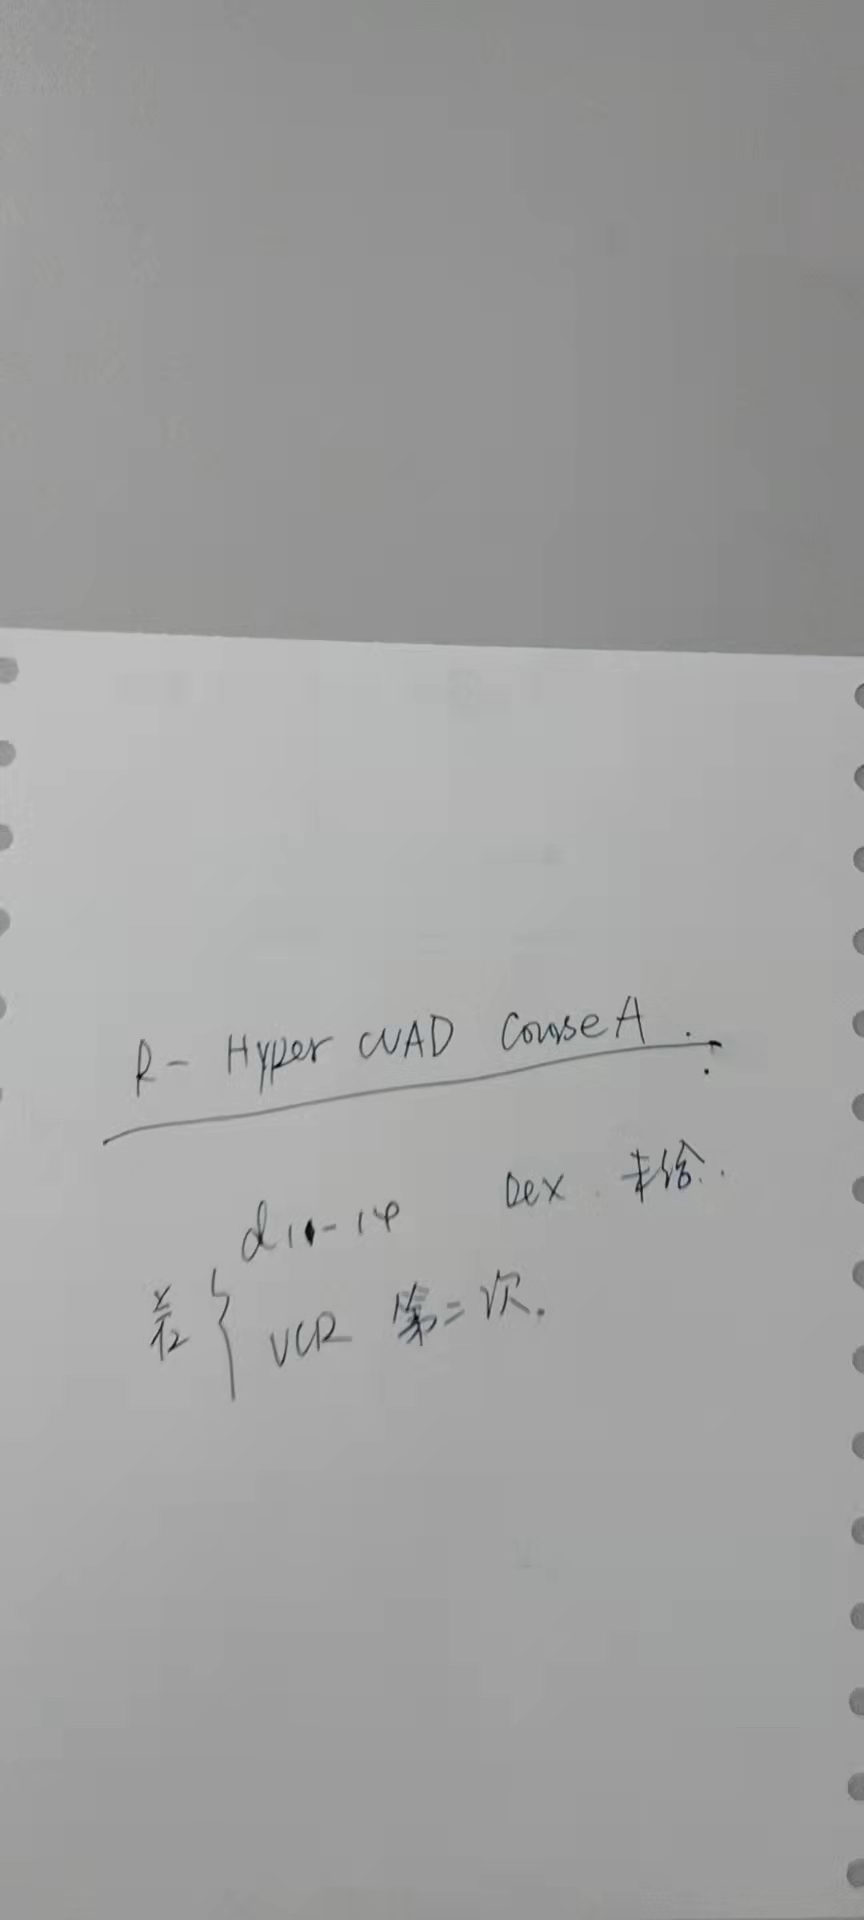 R- Hyper CVAD Course A.
d11-14 Dex 未给.
差 { VCR 第二次.